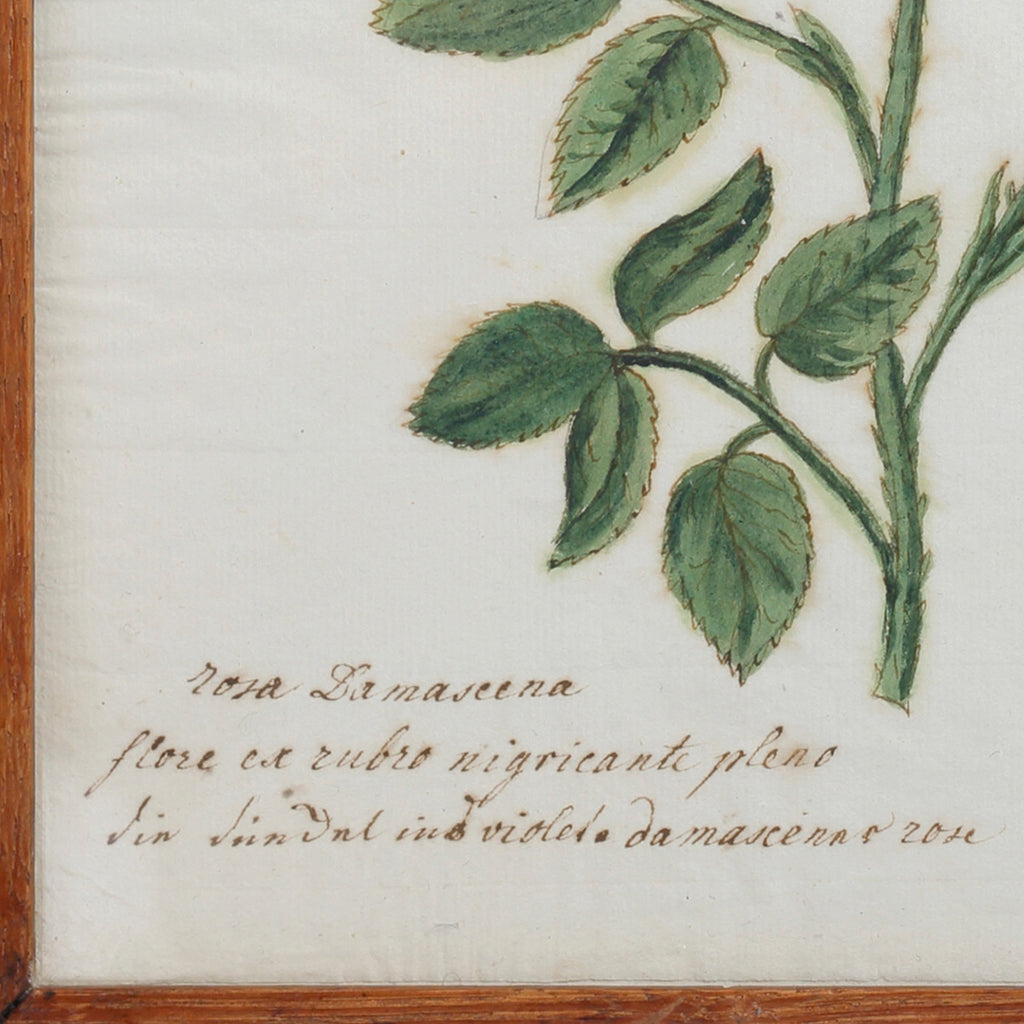 rosa Damascena
flore ex rubro nigricante pleno
die dunkel ins violet. damascener rose